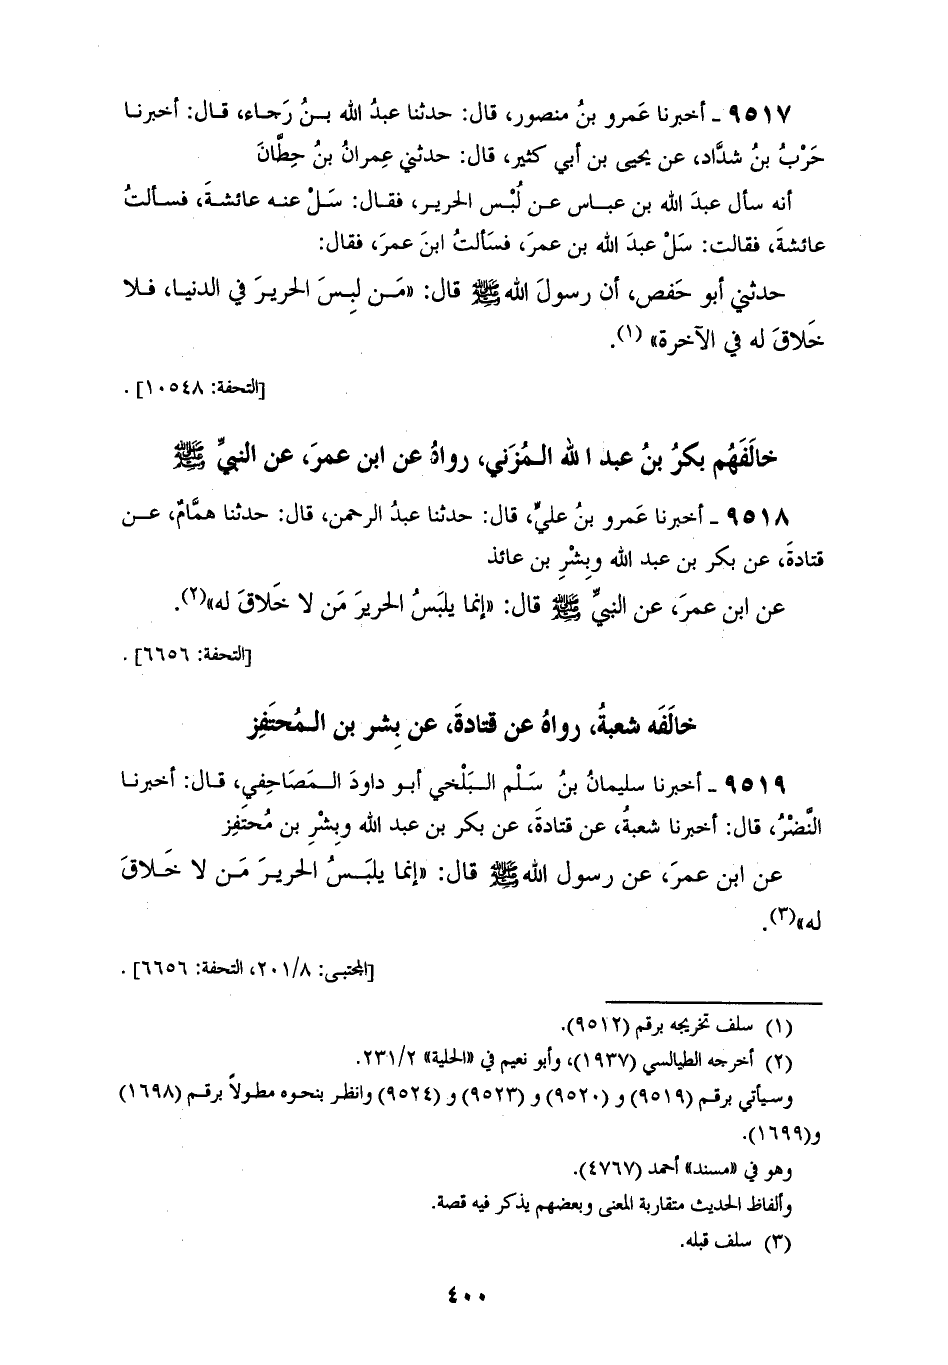 ٩٥١٧ ـ أخبرنا عَمرو بنُ منصور، قال: حدثنا عبدُ الله بـنُ رَجـاء، قـال: أخبرنـا
حَرْبُ بنُ شدَّاد، عن يحيى بن أبي كثير، قال: حدثني عِمرانُ بنُ حِطَّانَ
أنه سأل عبدَ الله بن عبـاس عـن لُبْس الحريـر، فقـال: سَـلْ عنـه عائشـةَ، فسـألتُ
عائشةَ، فقالت: سَلْ عبدَ الله بن عمرَ، فسَألتُ ابنَ عمرَ، فقال:
حدثني أبو حَفص، أن رسولَ الله ﷺ قال: «مَـن لبِسَ الحريرَ في الدنيـا، فـلا
خَلاقَ له في الآخرة» (١).
[التحفة: ١٠٥٤٨] .
خالَفَهُم بكرُ بنُ عبد الله الـمُزَني، رواهُ عن ابن عمرَ، عن النبيِّ ﷺ
٩٥١٨ ـ أخبرنا عَمرو بنُ عليٍّ، قال: حدثنا عبدُ الرحمن، قال: حدثنا همَّامٌ، عـن
قتادةَ، عن بكر بن عبد الله وبِشْرِ بن عائذ
عن ابن عمرَ، عن النبيِّ ﷺ قال: «إنما يلبَسُ الحريرَ مَن لا خَلاقَ له»(٢).
[التحفة: ٦٦٥٦] .
خالَفَه شعبةُ، رواهُ عن قتادةَ، عن بِشر بن الـمُحتَفِز
٩٥١٩ ـ أخبرنا سليمانُ بنُ سَلْم البَلْخي أبـو داودَ الـمَصَاحِفي، قـال: أخبرنـا
النَّضْرُ، قال: أخبرنا شعبةُ، عن قتادةَ، عن بكر بن عبد الله وبِشْرِ بن مُحتَفِز
عن ابن عمرَ، عن رسول الله ﷺ قال: «إنما يلبَـسُ الحريـرَ مَـن لا خَـلاقَ
له»(٣).
[المجتبى: ٢٠١/٨، التحفة: ٦٦٥٦] .
(١) سلف تخريجه برقم (٩٥١٢).
(٢) أخرجه الطيالسي (١٩٣٧)، وأبو نعيم في «الحلية» ٢٣١/٢.
وسيأتي برقم (٩٥١٩) و (٩٥٢٠) و (٩٥٢٣) و (٩٥٢٤) وانظر بنحوه مطولاً برقم (١٦٩٨)
و(١٦٩٩).
وهو في «مسند» أحمد (٤٧٦٧).
وألفاظ الحديث متقاربة المعنى وبعضهم يذكر فيه قصة.
(٣) سلف قبله.
٤٠٠